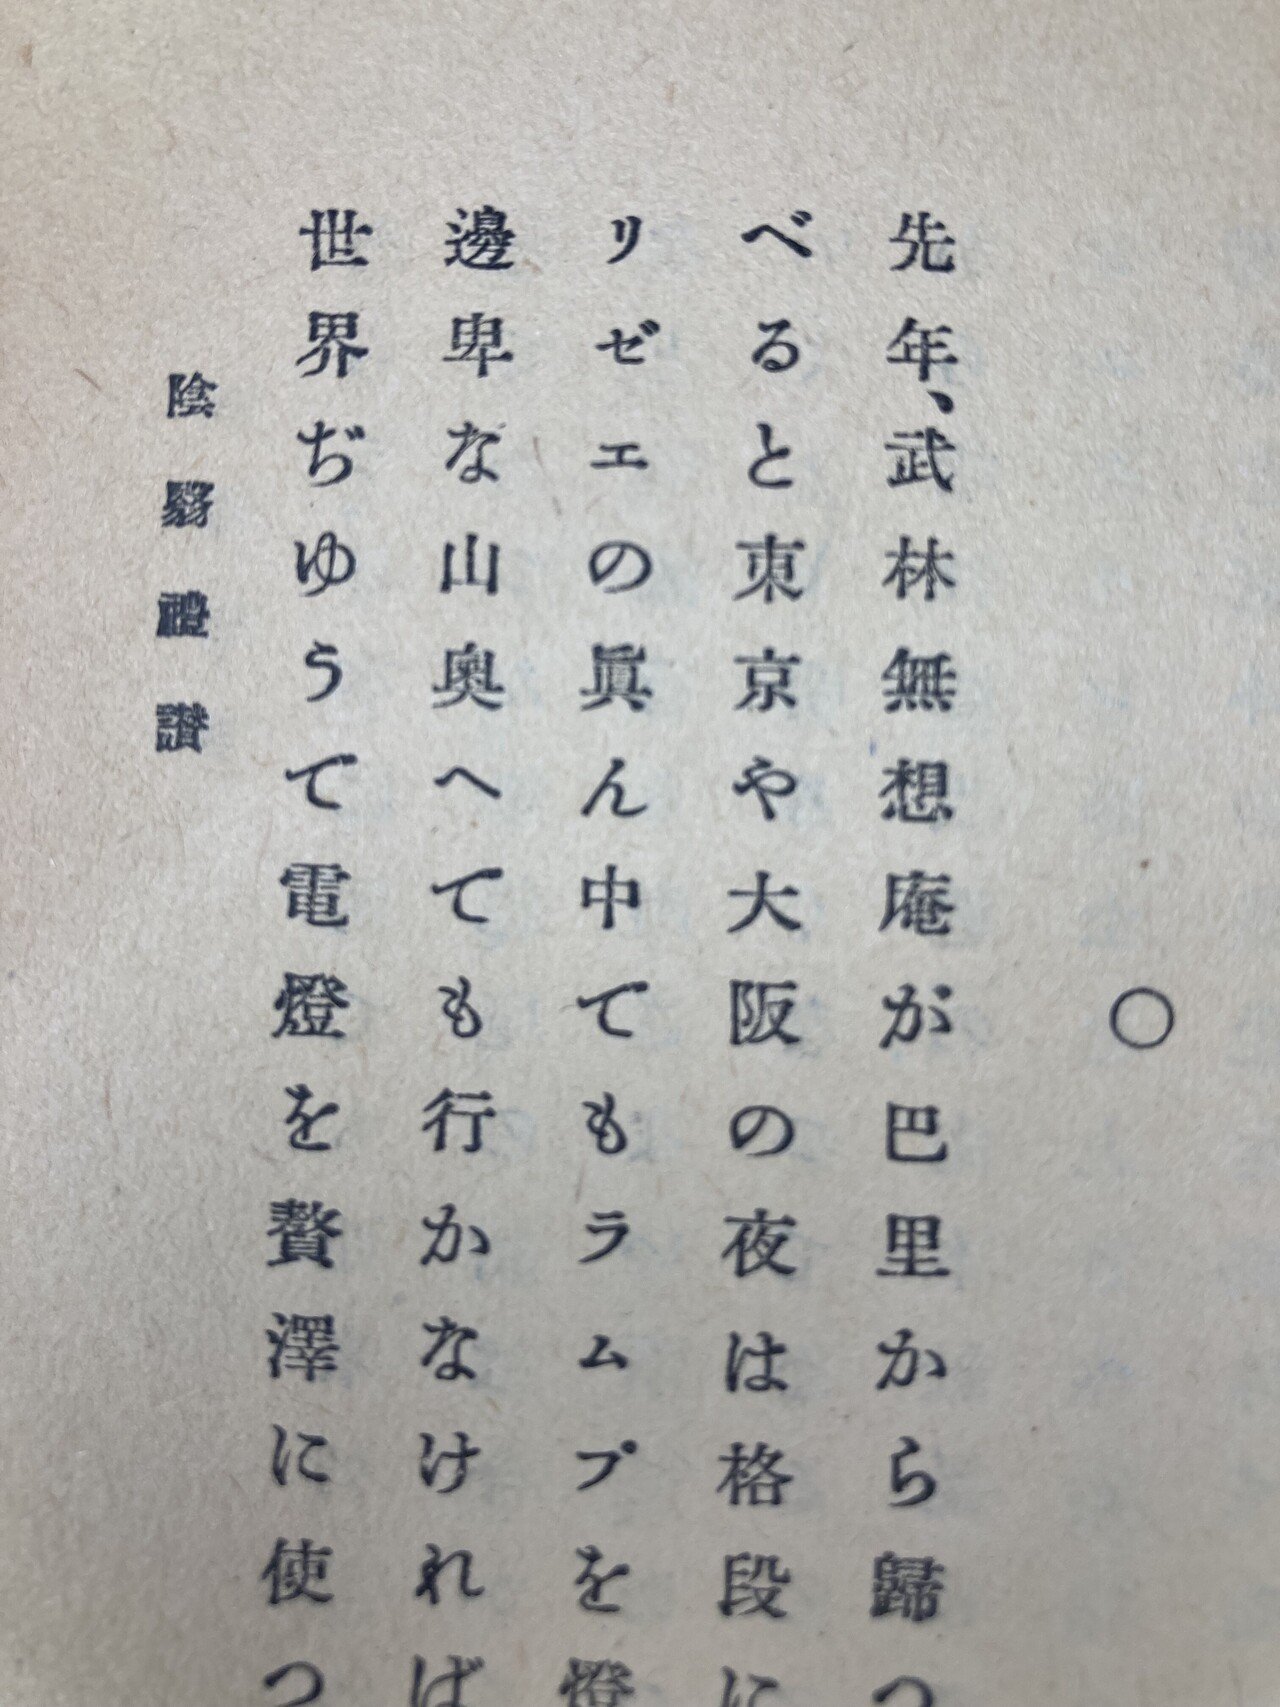 〇
先年、武林無想庵が巴里から歸つ
べると東京や大阪の夜は格段に
リゼエの眞ん中でもラムプを燈
邊卑な山奧へても行かなければ
世界ぢゆうで電燈を贅澤に使つ
陰翳禮讃